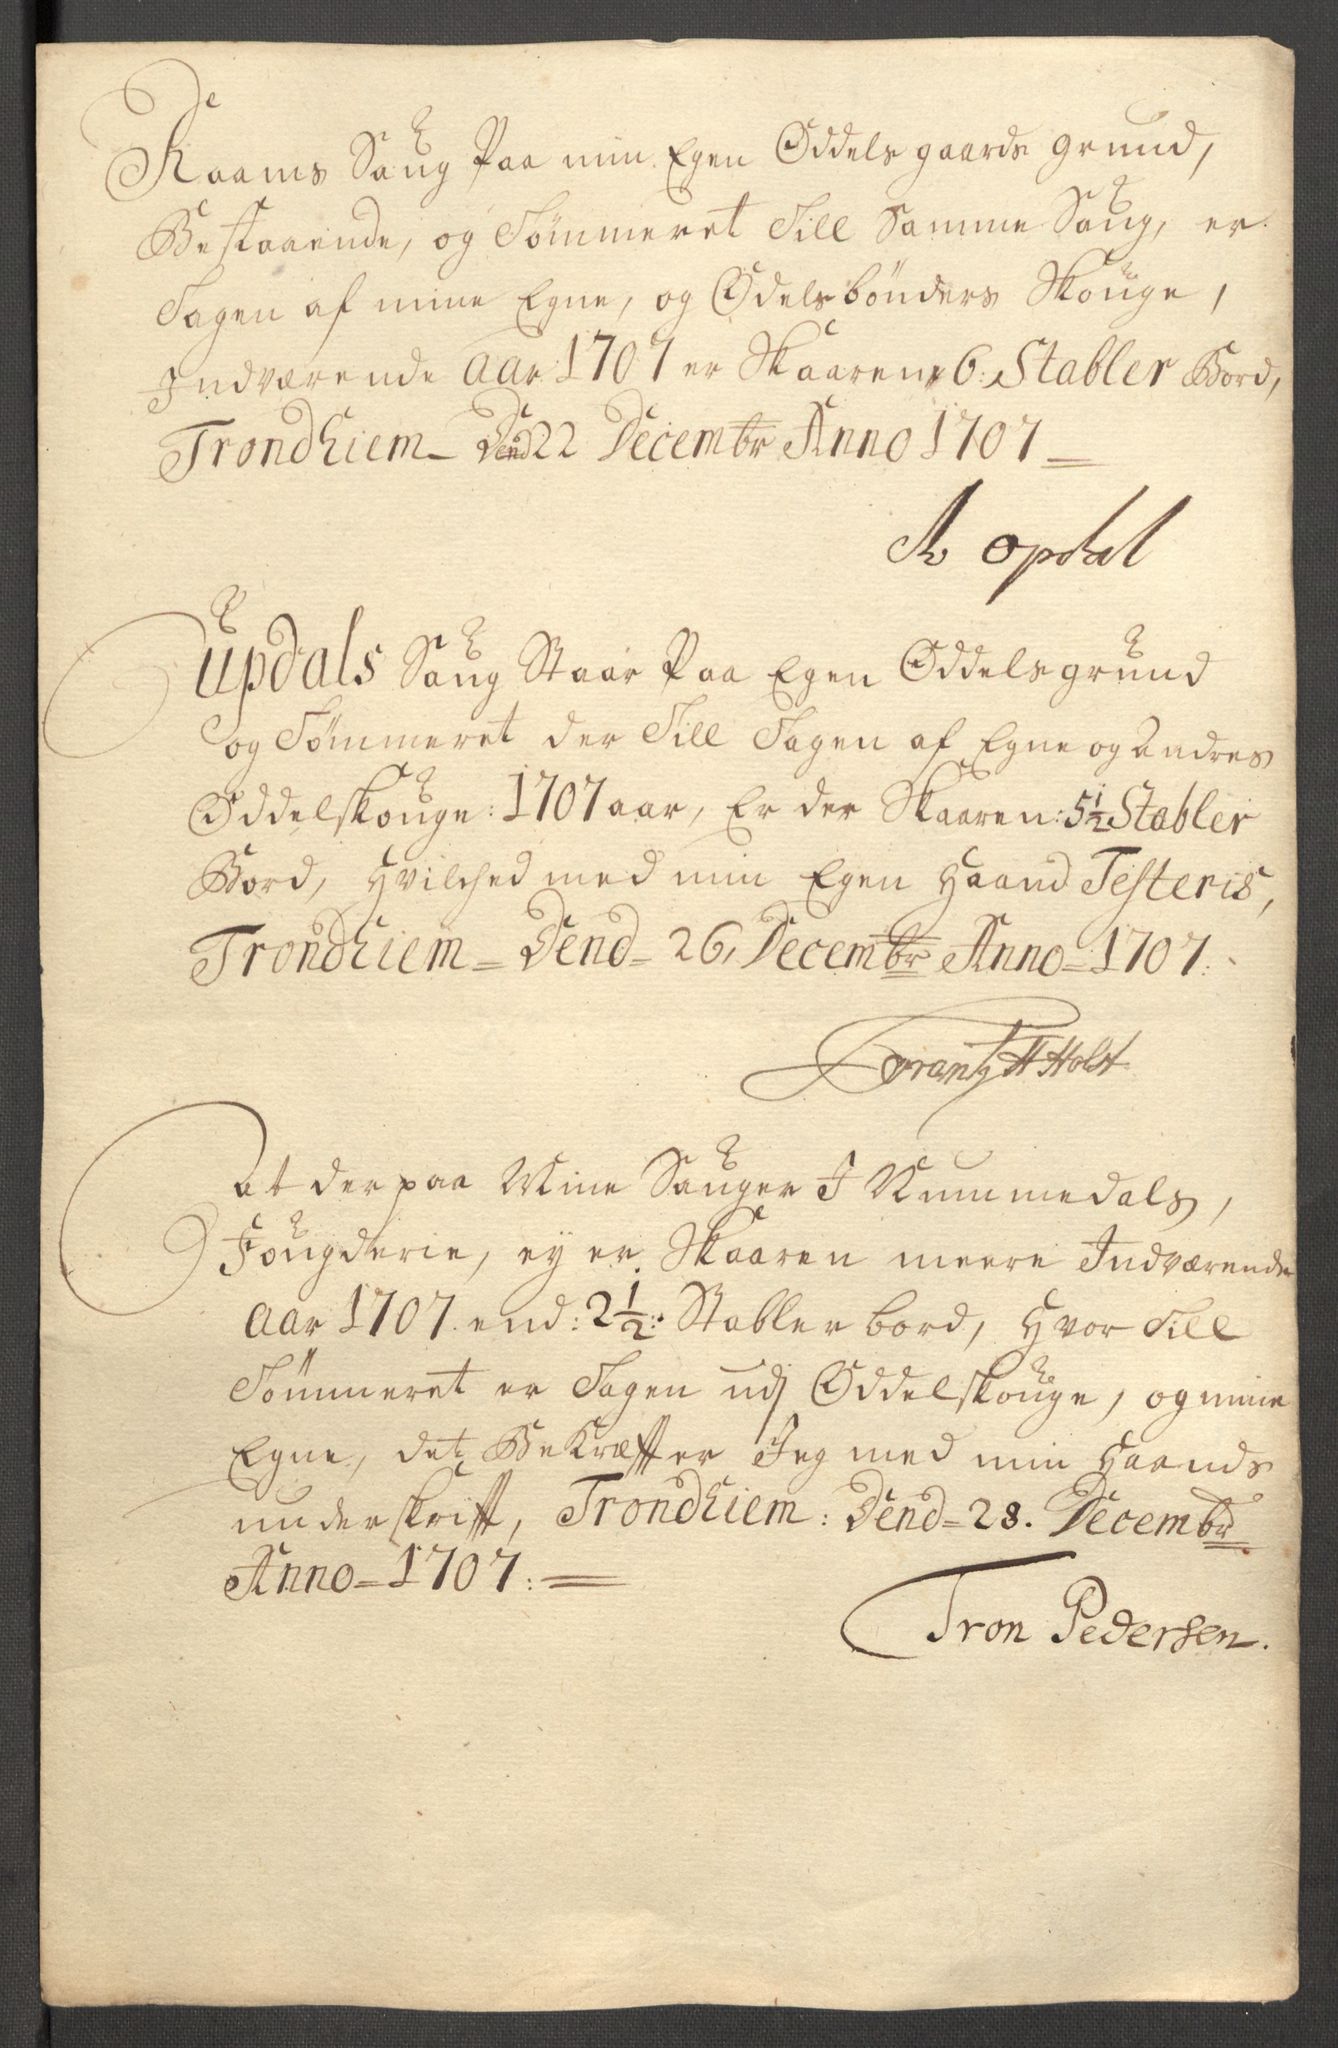 Raams Saug Paa min Egen Oddels gaards grund,
Bestaaende, og Tømmeret Till Samme Saug, er
Tagen af mine Egne, og Odelsbønders Skouge,
Indværende Aar 1707 er Skaaren 6: Stabler Bord,
Trondhiem Dend 22 Decembr Anno 1707
opdal
Updals Saug Staar Paa Egen Oddelsgrund
og Tømmeret der Till Tagen af Egne og Andres
Oddelskouge: 1707 aar, Er der Skaaren: 5½ Stabler
Bord, Hvilched med min Egen Haand Testeris,
Trondhiem Dend 26, Decembr Anno 1707.
Frantz H Holst
at der paa Mine Sauger I Nummedals,
Fougderie, ey er Skaaren meere Indværende
Aar 1707. end: 2½: Stabler bord, Hvor Till
Tømmeret er Tagen udj Oddelskouge, og mine
Egne, det Bekræffter Jeg med min Haands
underskrifft, Trondhiem: Dend 28. Decembr
Anno 1707:
Tron Pedersen.